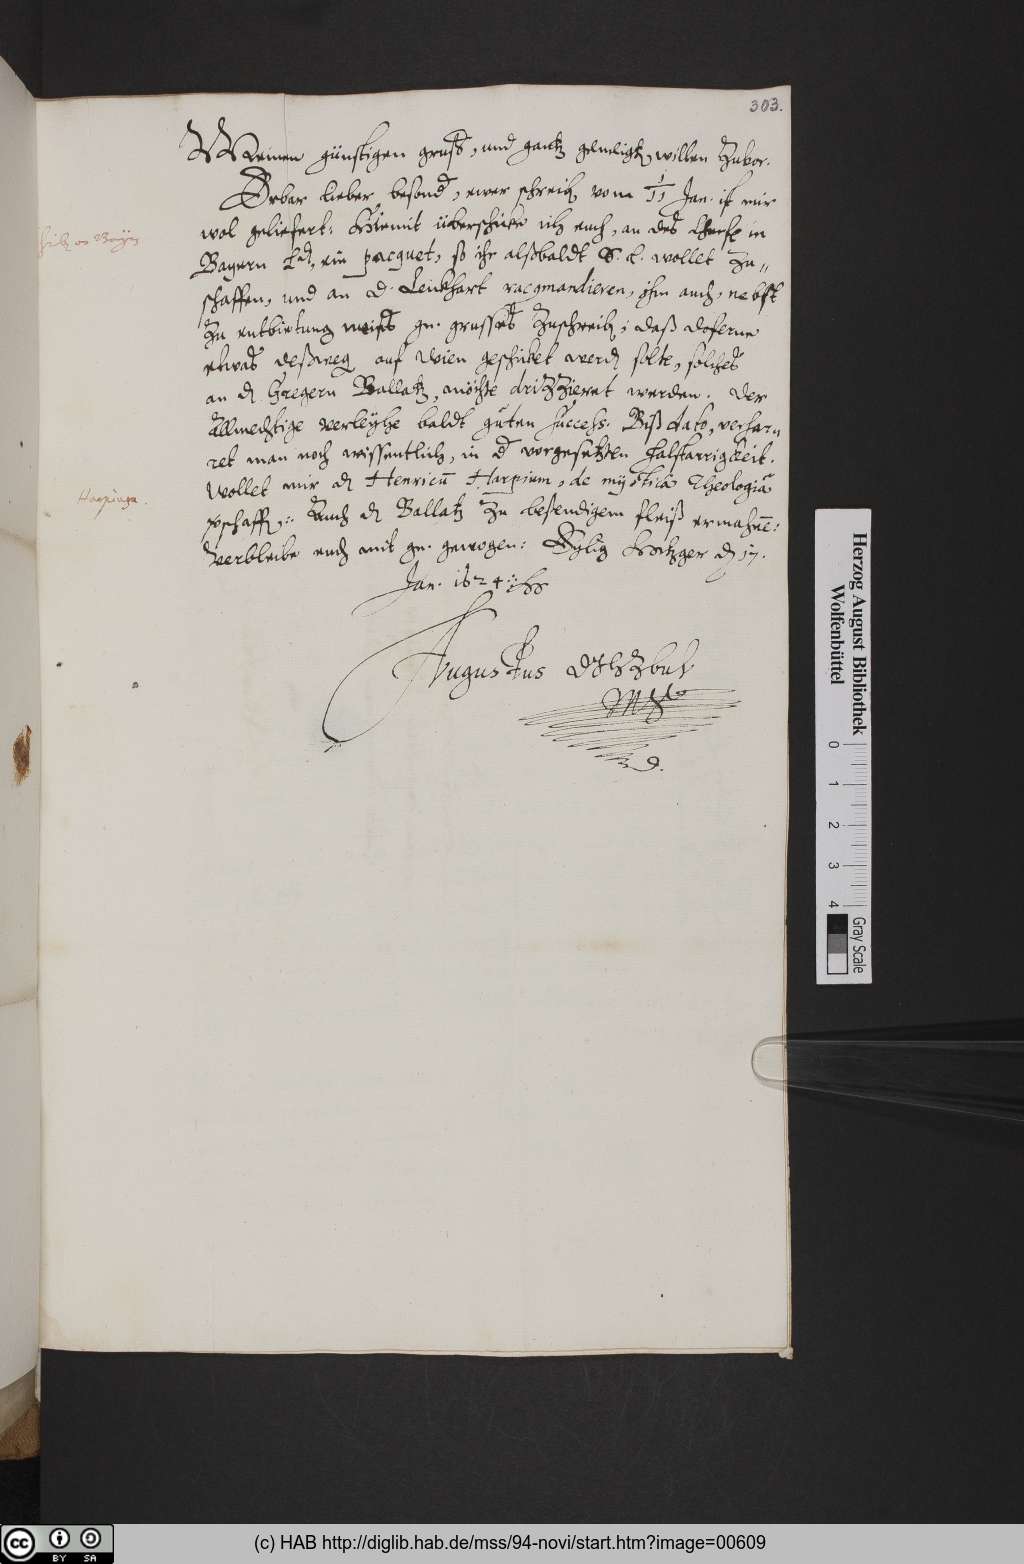 303.
Meinen günstigen gruß, und gantz geneigtn willen zuvor.
Erbar lieber besonder, ewer schreibn vom 1/11 Jan. ist mir
wol geliefert: Hiemit überschicke ich euch, an des in
Bayern Ld, ein pacquet, so ihr alßbaldt S. L. wollet zu=
schaffen, und an d. Leickhart racomandieren, ihm auch, nebst
zu entbietung meins gn. grusses zuschreibn, daß doferne
etwas deßwegn auf Wien geschicket werdn solte, solches
an dn Gregern Ballatz, möchte drizzieret werden. Der
Allmechtige verleyhe baldt guten success. Biß dato, verhar=
ret man noch wissentlich, in d vorgesetzten halßstarrigkeit.
Wollet mir dn Henricum Harpium, de mystica Theologia
vschaffn: Auch dn Ballatz zu bestendigem fleiß ermahnen:
Verbleibe euch mit gn. gewogen: Eylig Hitzger dn 17.
Jan. 1624.
Augustus DJhZbuL
Harpius.
Herzog August Bibliothek
Wolfenbüttel
0 1 2 3 4
Gray Scale
cc BY SA
(c) HAB http://diglib.hab.de/mss/94-novi/start.htm?image=00609